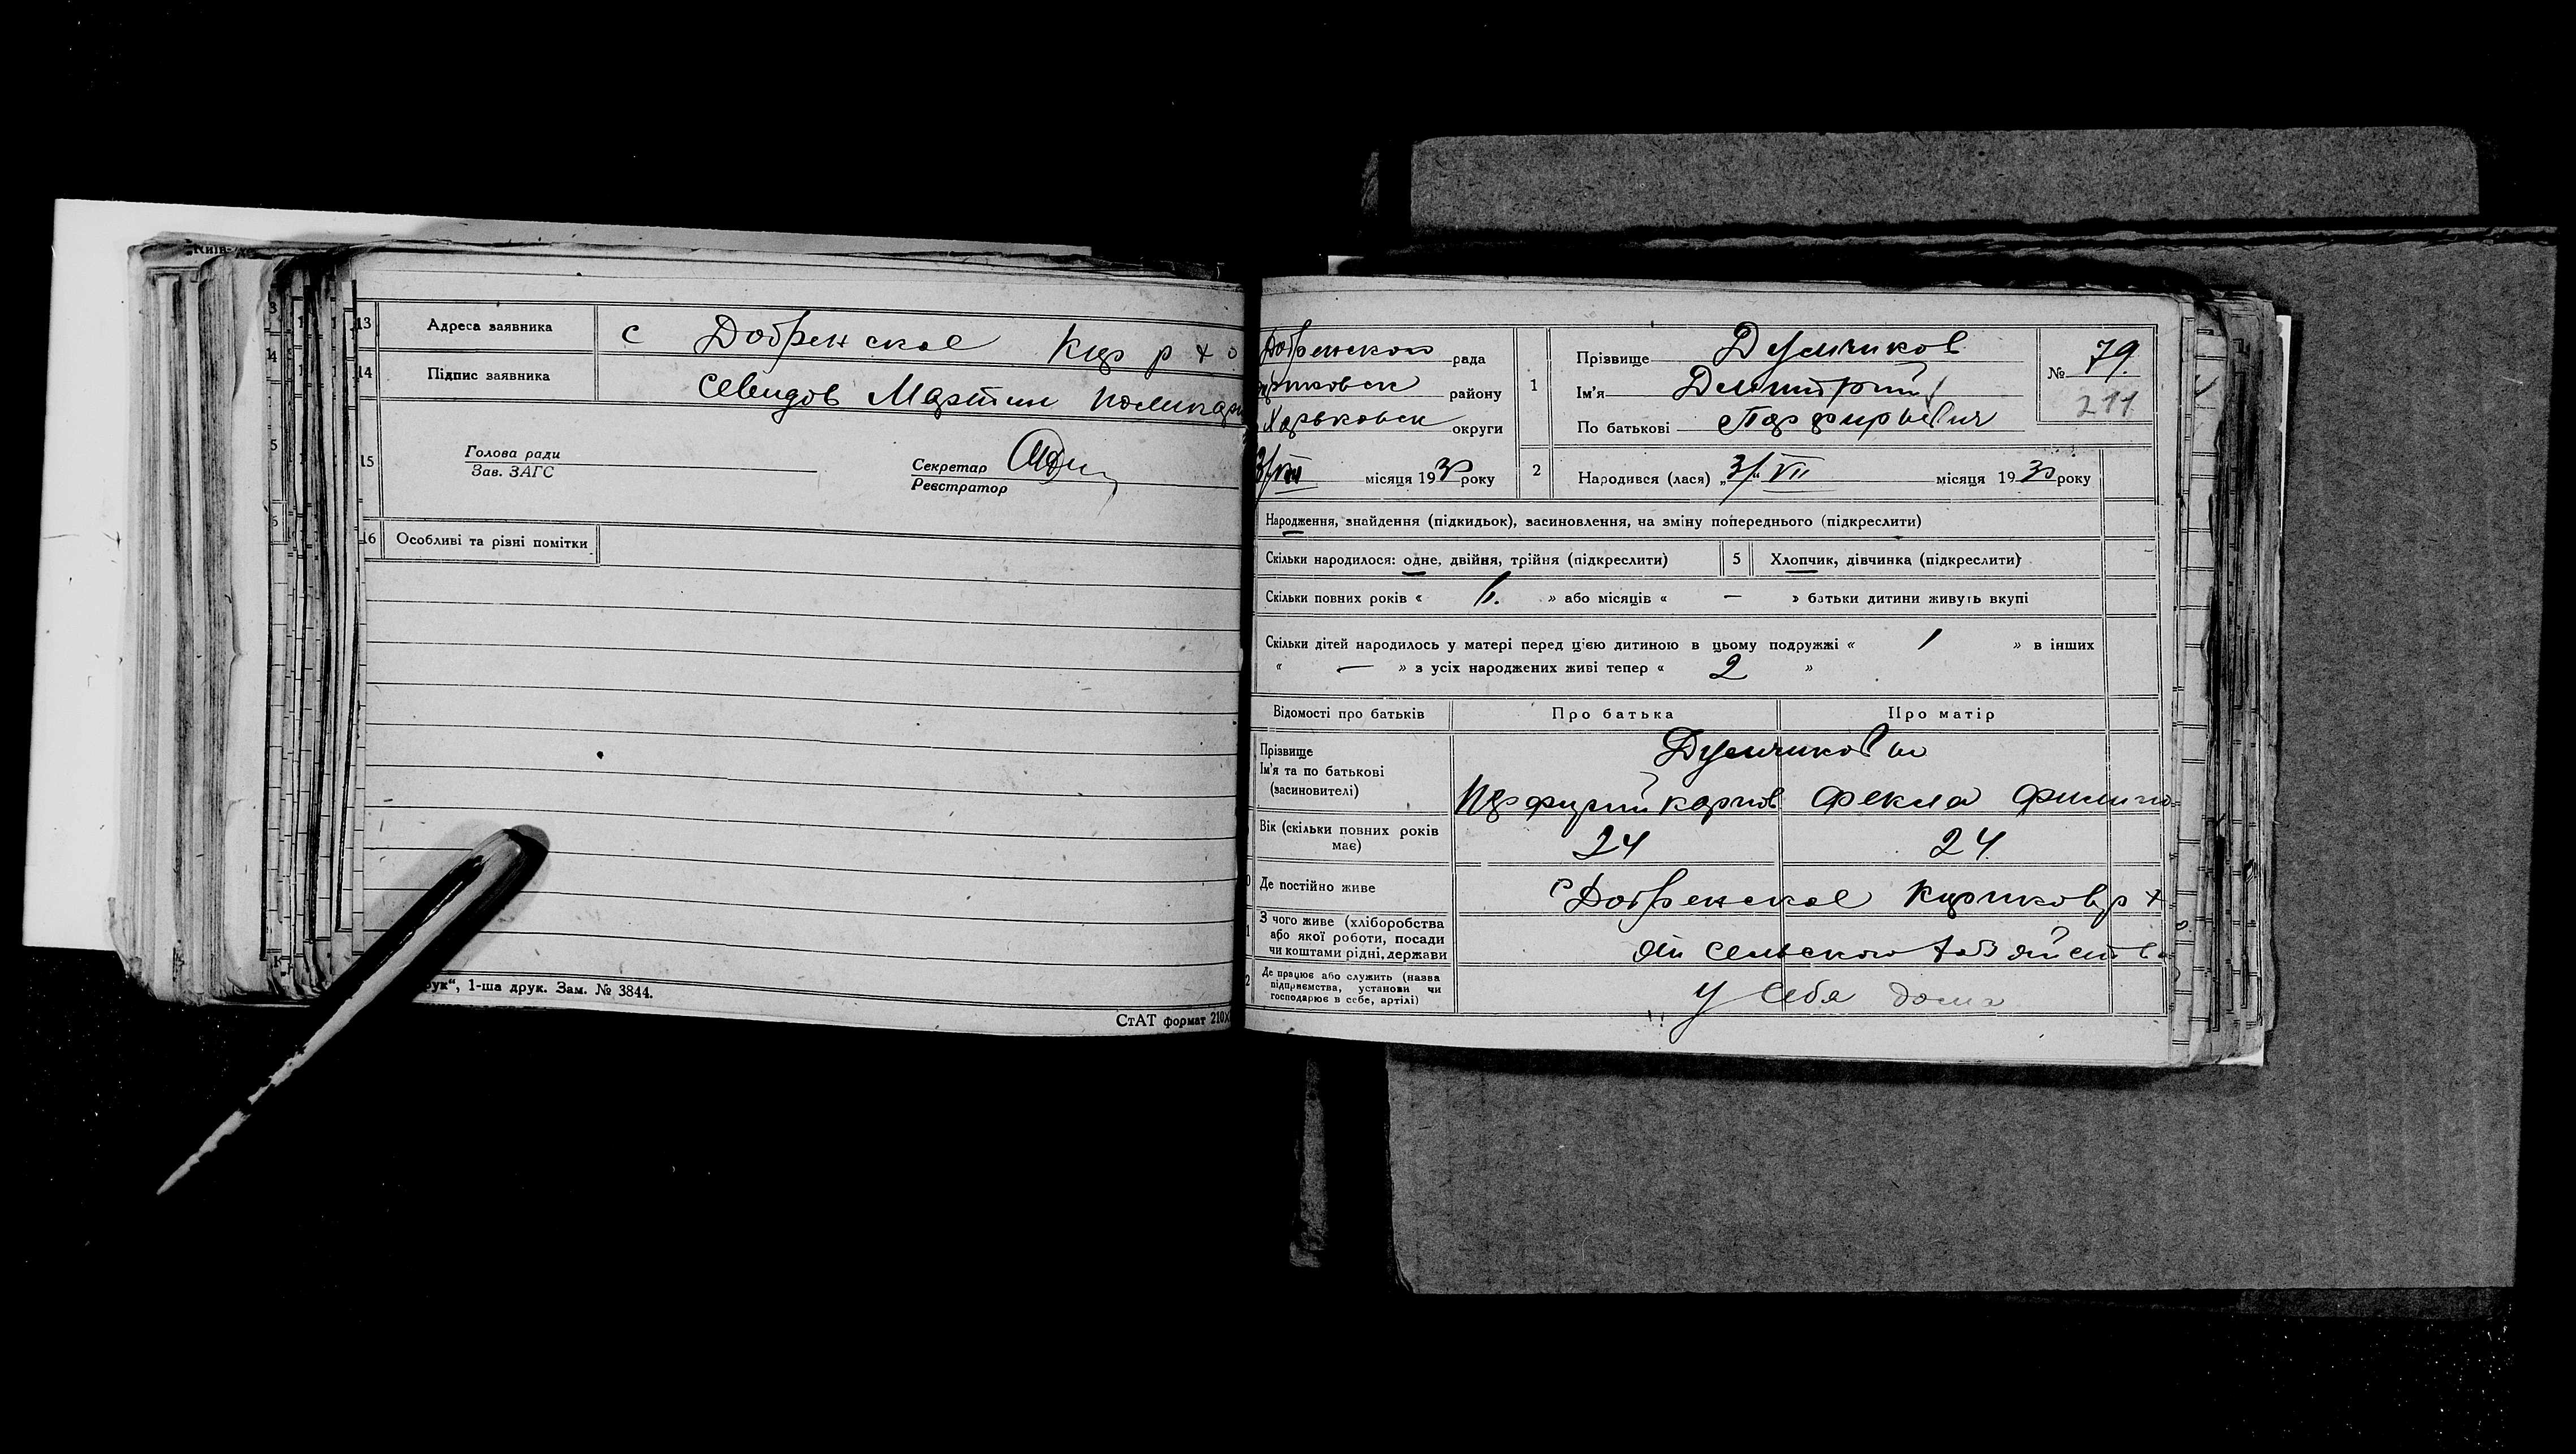 Київ
13 Адреса заявника с Добренское Кцр р х о
14 Підпис заявника Свидов Мартин Поликарп
15 Голова ради
Зав. ЗАГС
Секретар
Реєстратор
16 Особливі та різні помітки
рук“, 1-ша друк. Зам. № 3844.
СтАТ формат 210х
Добренской рада
району
Харьковск округи
3/VII місяця 1930 року
1 Прізвище Думчиков
Ім'я Дмитрий
По батькові Парфирьевич
№ 79
211
2 Народився (лася) „3/“ VII місяця 1930 року
Народження, знайдення (підкидьок), засиновлення, на зміну попереднього (підкреслити)
Скільки народилося: одне, двійня, трійня (підкреслити) 5 Хлопчик, дівчинка (підкреслити)
Скільки повних років « » або місяців « — » батьки дитини живуть вкупі
Скільки дітей народилось у матері перед цією дитиною в цьому подружжі « 1 » в інших
« — » з усіх народжених живі тепер « 2 »
Відомості про батьків Про батька Про матір
Прізвище Думчиковы
Ім'я та по батькові
(засиновителі) Парфирий карпов Фекла Филипо
Вік (скільки повних років має) 24 24
Де постійно живе с Добренское
З чого живе (хліборобства
або якої роботи, посади
чи коштами рідні, держави от сельского хозяйства
Де працює або служить (назва
підприємства, установи чи
господарює в себе, артілі) у себя дома